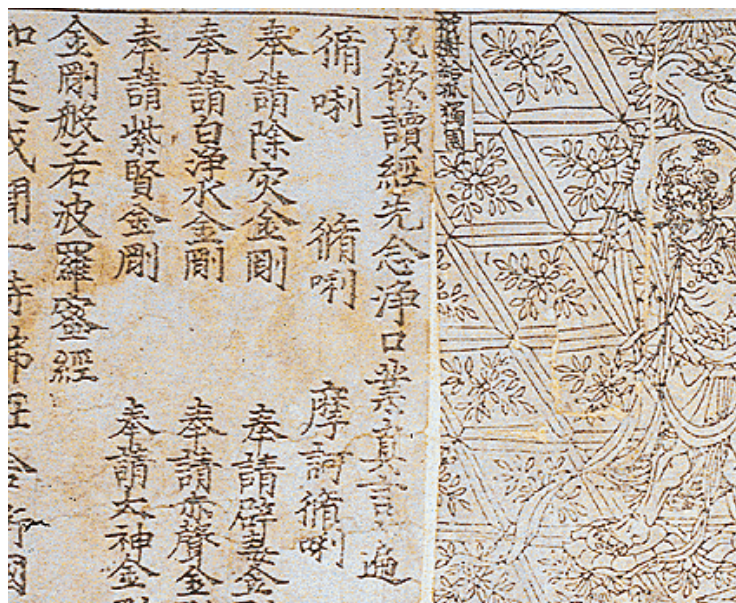 祇樹給孤獨園
凡欲讀經先念淨口業真言一遍
脩唎 脩唎 摩訶脩唎
奉請除灾金剛 奉請辟毒金剛
奉請白淨水金剛 奉請赤聲金剛
奉請紫賢金剛 奉請大神金剛
金剛般若波羅蜜經
如是我聞一時佛在舍衛國